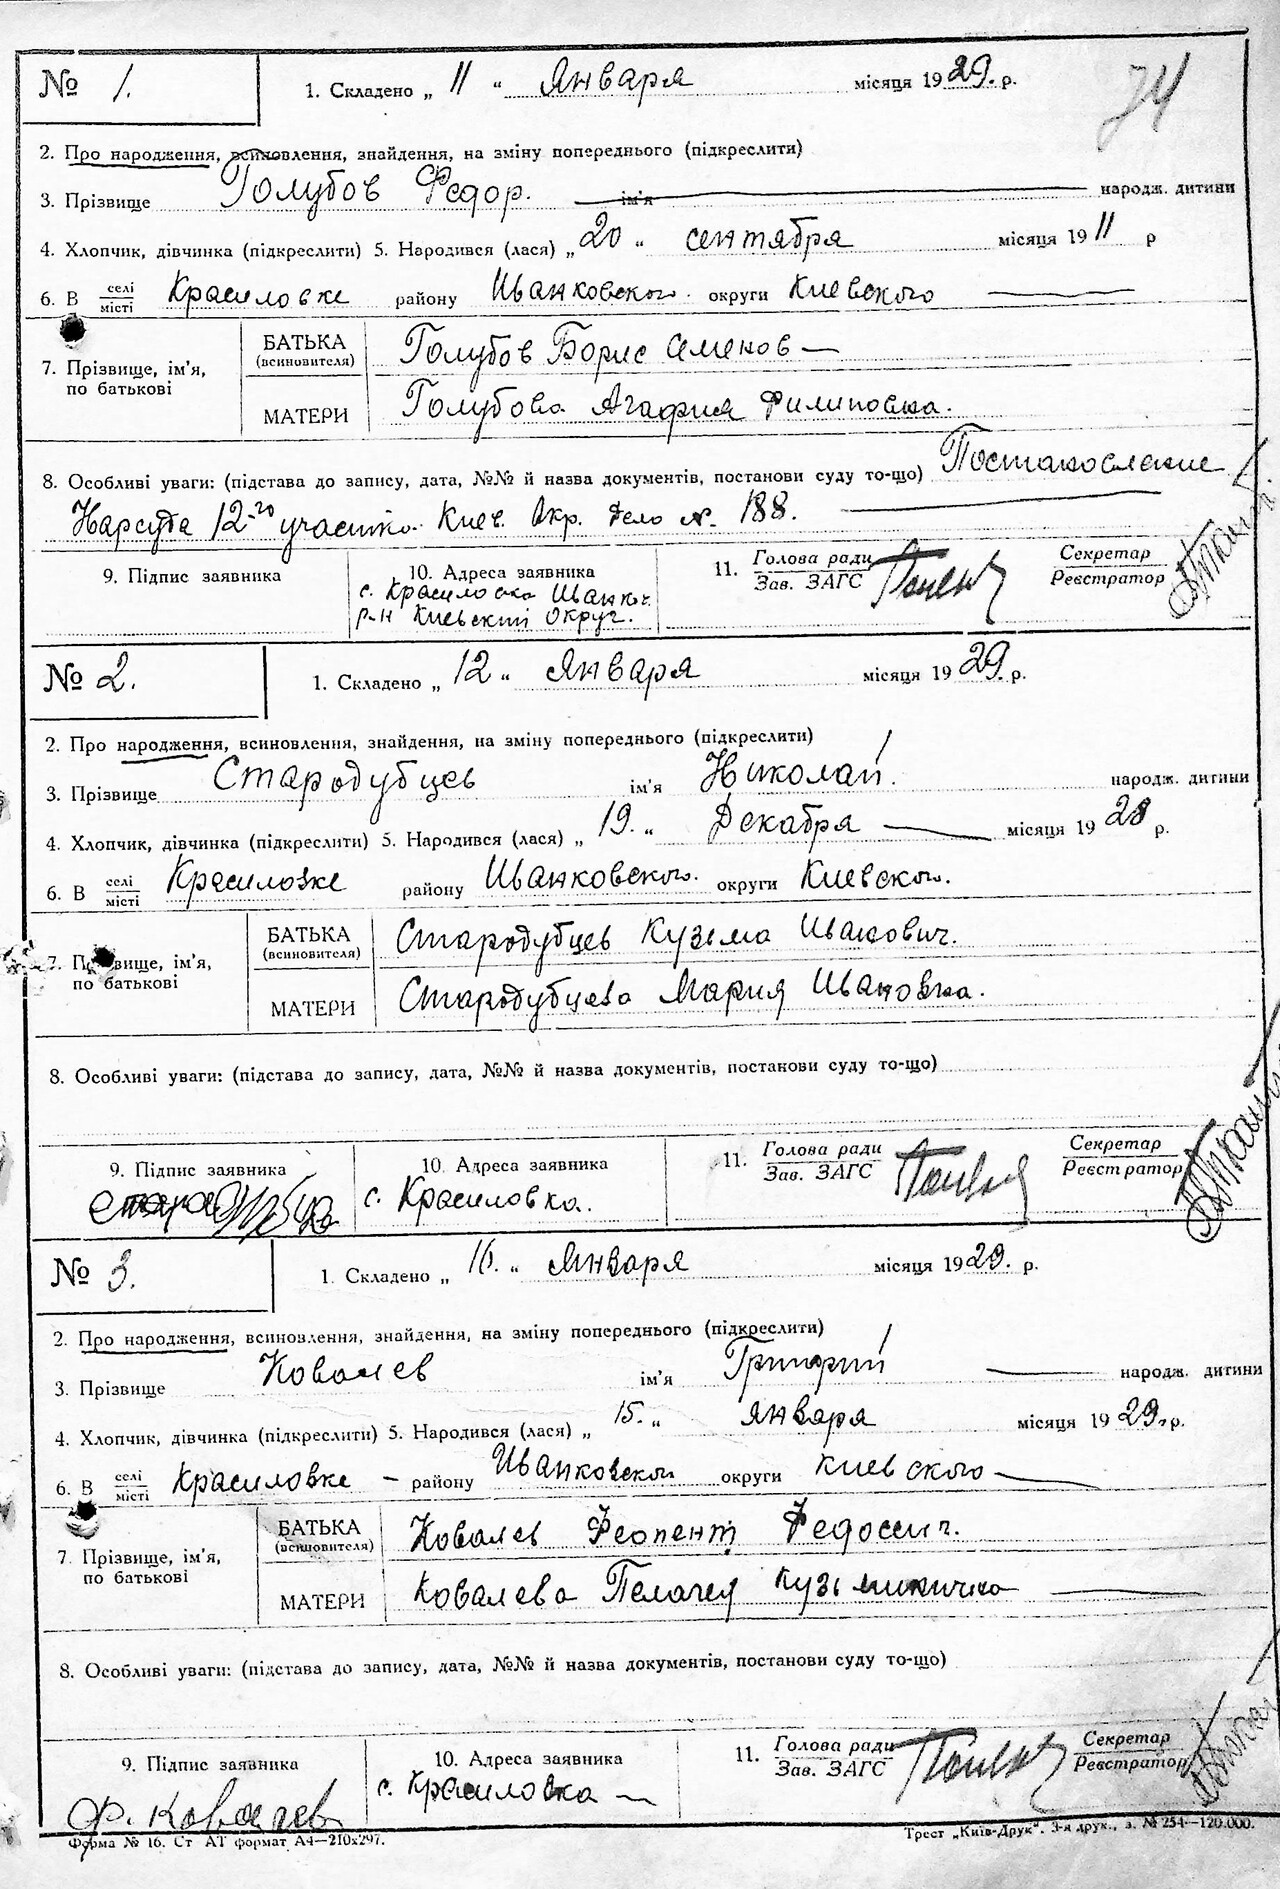 74
№ 1. 1. Складено „ 11 “ Января місяця 1929. р.
2. Про народження, всиновлення, знайдення, на зміну попереднього (підкреслити)
3. Прізвище Голубов Федор. ім'я народж. дитини
4. Хлопчик, дівчинка (підкреслити) 5. Народився (лася) „ 20 “ сентября місяця 1911 р
6. В селі/місті Красиловке району Иванковского округи Киевского
7. Прізвище, ім'я, по батькові
БАТЬКА (всиновителя) Голубов Борис Семенов
МАТЕРИ Голубова Агафия Филиповна.
8. Особливі уваги: (підстава до запису, дата, №№ й назва документів, постанови суду то-що) Постановление
Нарсуда 12-го участка Киев. Окр. Дело №. 188.
9. Підпис заявника 10. Адреса заявника 11. Голова ради/Зав. ЗАГС Секретар/Реєстратор
с. Красиловка Иванк.
р-н Киевский Округ.
№ 2. 1. Складено „ 12 “ Января місяця 1929. р.
2. Про народження, всиновлення, знайдення, на зміну попереднього (підкреслити)
3. Прізвище Стародубцев ім'я Николай. народж. дитини
4. Хлопчик, дівчинка (підкреслити) 5. Народився (лася) „ 19. “ Декабря місяця 1928 р.
6. В селі/місті Красиловке району Иванковского. округи Киевского.
7. Прізвище, ім'я, по батькові
БАТЬКА (всиновителя) Стародубцев Кузьма Иванович.
МАТЕРИ Стародубцева Мария Ивановна.
8. Особливі уваги: (підстава до запису, дата, №№ й назва документів, постанови суду то-що)
9. Підпис заявника 10. Адреса заявника 11. Голова ради/Зав. ЗАГС Секретар/Реєстратор
с. Красиловка.
№ 3. 1. Складено „ 16. “ Января місяця 1929. р.
2. Про народження, всиновлення, знайдення, на зміну попереднього (підкреслити)
3. Прізвище Ковалев ім'я Григорий народж. дитини
4. Хлопчик, дівчинка (підкреслити) 5. Народився (лася) „ 15. “ января місяця 1929. р.
6. В селі/місті Красиловке району Иванковского округи Киевского
7. Прізвище, ім'я, по батькові
БАТЬКА (всиновителя) Ковалев Феопент Федосеич.
МАТЕРИ Ковалева Пелагея Кузьминична
8. Особливі уваги: (підстава до запису, дата, №№ й назва документів, постанови суду то-що)
9. Підпис заявника 10. Адреса заявника 11. Голова ради/Зав. ЗАГС Секретар/Реєстратор
Ф. Ковалев с. Красиловка
Форма № 16. Ст АТ формат А4—210х297. Трест „Київ-Друк“. 3-я друк., з. № 254—120.000.